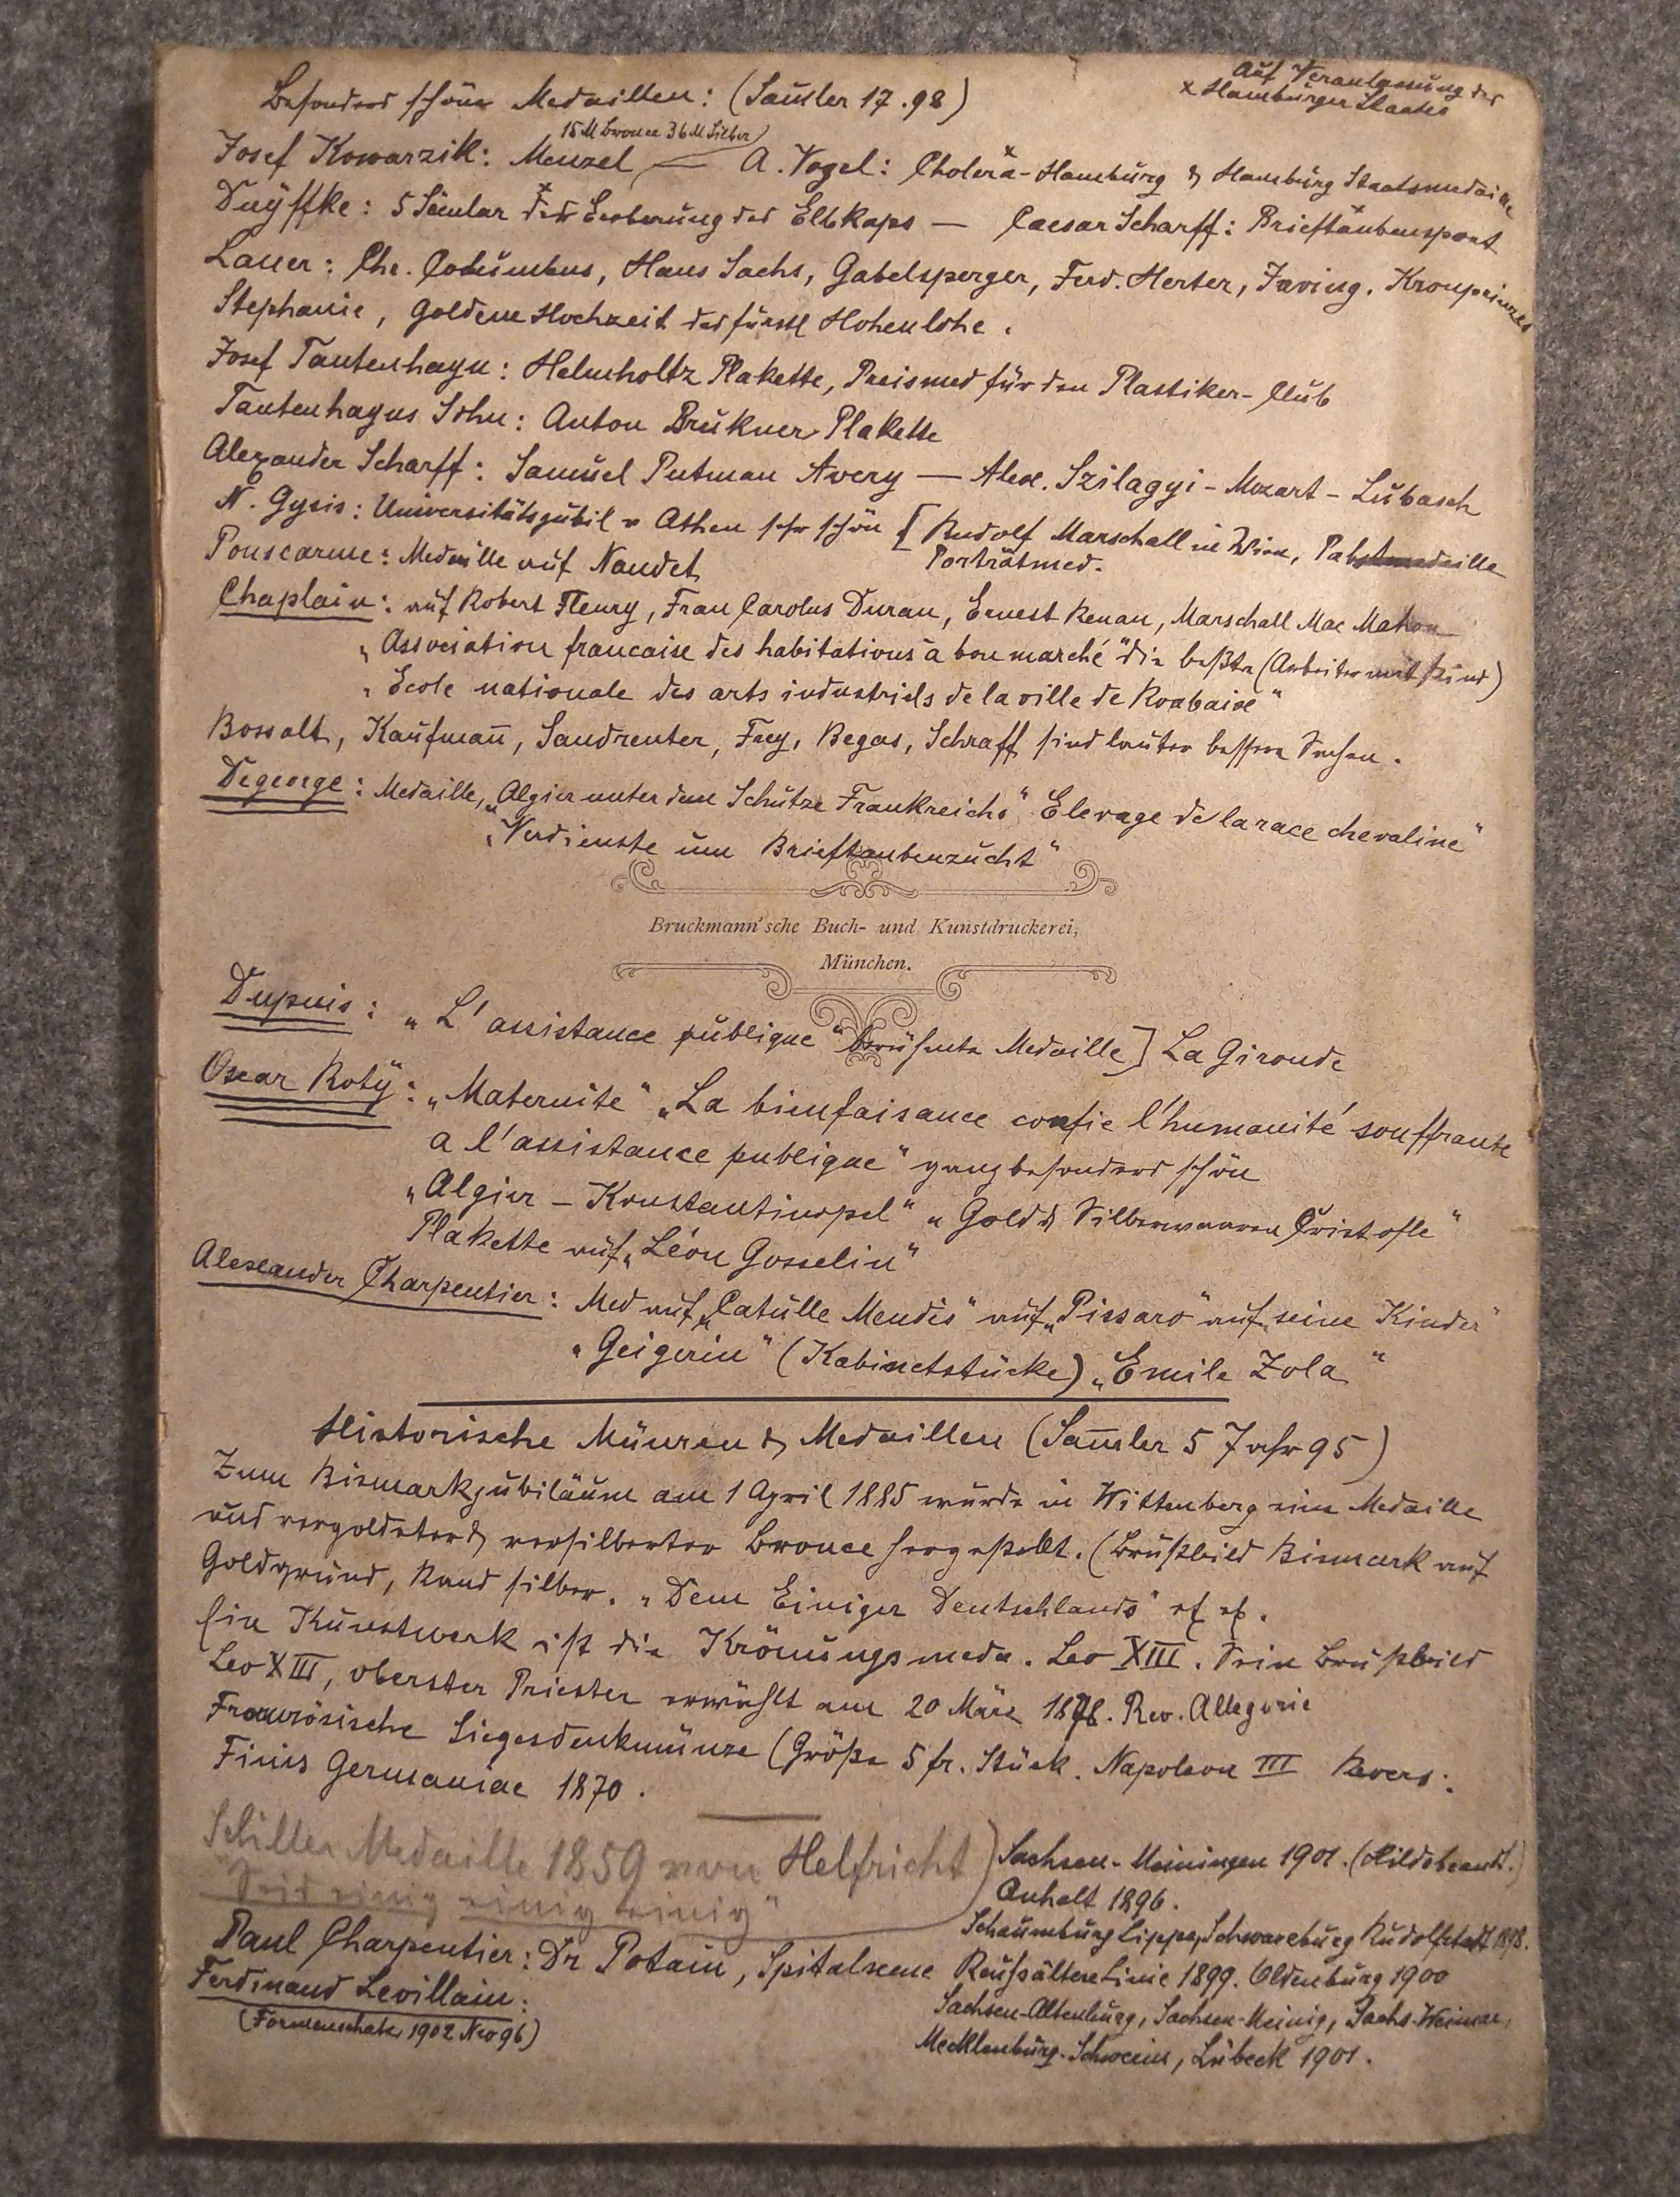 Besonders schöne Medaillen: (Sam̄ler 17.98)
Auf Veranlassung des
x Hamburger Staates
15 M Bronce 36 M Silber
Josef Kowarzik: Menzel — A. Vogel: Cholera-Hamburg & Hamburg Staatsmedaille
Duyffke: 5 Säcular der Eroberung des Elbkaps — Caesar Scharff: Brieftaubensport
Lauer: Chr. Columbus, Hans Sachs, Gabelsperger, Ferd. Herter, Irving. Kronprinzes
Stephanie, Goldene Hochzeit des fürstl Hohenlohe.
Josef Tautenhayn: Helmholtz Plakette, Preismed für den Plastiker-Club
Tautenhayns Sohn: Anton Brukner Plakette
Alexander Scharff: Samuel Putman Avery — Alex. Szilagyi - Mozart - Lubasch
N. Gysis: Universitätsjubil v Athen sehr schön [ Rudolf Marschall in Wien, Pabstmedaille
Ponscarme: Medaille auf Naudet
Porträtmed.
Chaplain: auf Robert Fleury, Frau Carolus Duran, Ernest Renan, Marschall Mac Mahon
„Association francaise des habitations à bon marché" die beßte (Arbeiter mit Kind)
„Ecole nationale des arts industriels de la ville de Roubaix"
Bossalt, Kaufman̄, Sandreuter, Frey, Begas, Schraff sind lauter bessere Sachen.
Degeorge: Medaille, „Algier unter dem Schutze Frankreichs" Elevage de la race chevaline"
„Verdienste um Brieftaubenzucht"
Bruckmann'sche Buch- und Kunstdruckerei,
München.
Dupuis: „L'assistance publique" berühmte Medaille] La Gironde
Oscar Roty: „Maternite" „La bienfaisance confie l'humanité souffrante
a l'assistance publique" ganz besonders schön
„Algier - Konstantinopel" „Gold & Silberwaaren Cristofle"
Plakette auf „Léon Gosselin"
Alexander Charpentier: Med auf „Catulle Mendès" auf „Pissaro" auf „seine Kinder"
„Geigerin" (Kabinetstücke) „Emile Zola"
Historische Münzen & Medaillen (Sam̄ler 5 Jahr 95)
Zum Bismarkjubiläum am 1 April 1885 wurde in Wittenberg eine Medaille
aus vergoldeter & versilberter Bronce hergestellt. (Brußbild Bismark auf
Goldgrund, Rand silber. „Dem Einiger Deutschlands" etc etc.
Ein Kunstwerk ist die Krönungsmeda. Leo XIII. Sein Brustbild
Leo XIII, oberster Priester erwählt am 20 März 1878. Rev. Allegorie
Französische Siegesdenkmünze (Größe 5 fr. Stück. Napoleon III Revers:
Finis Germaniae 1870.
Schiller Medaille 1859 von Helfricht
„Seid einig einig einig"
Sachsen-Meiningen 1901. (Hildebrandt.)
Anhalt 1896.
Schaumburg Lippe, Schwarzburg Rudolstadt 1898.
Paul Charpentier: Dr Potain, Spitalscene
Reuss ältere Linie 1899. Oldenburg 1900
Ferdinand Levillain:
Sachsen-Altenburg, Sachsen-Meinig, Sachs-Weimar,
(Formenschatz 1902 Nro 96)
Mecklenburg-Schwerin, Lübeck 1901.